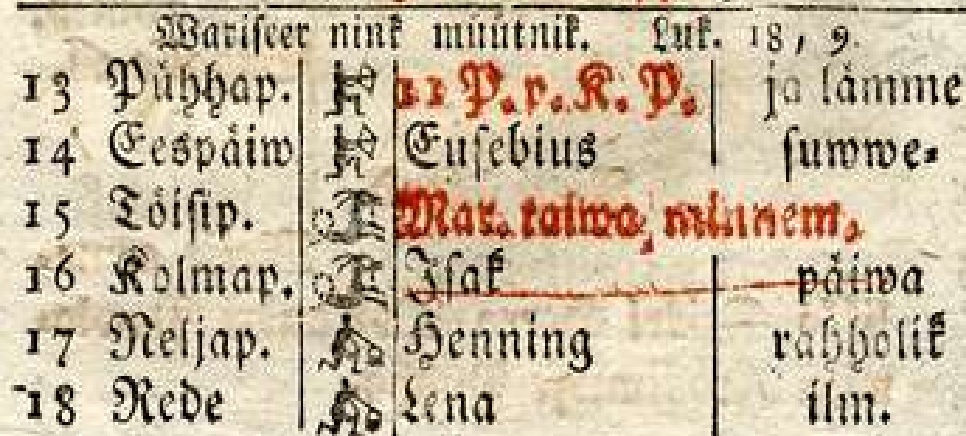 Wariseer nink muutnik. Luk. 18, 9.
13 Pühhap. 11 P. p. K. P. ja lämme
14 Eespäiw Eusebius suwwe-
15 Töisip. Mar. taiwa, minnem.
16 Kolmap. Isak päiwa
17 Neljap. Henning rahholik
18 Rede Lena ilm.